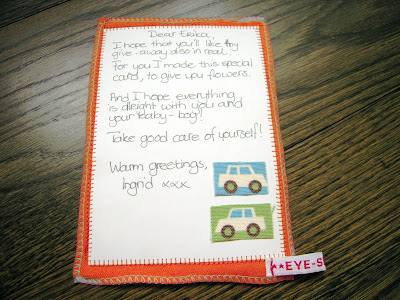 Dear Erika,
I hope that you'll like my
give-away also in real.
For you I made this special
card, to give you flowers.
And I hope everything
is alright with you and
your baby-boy!
Take good care of yourself!
Warm greetings,
Ingrid xxx
**EYE-S